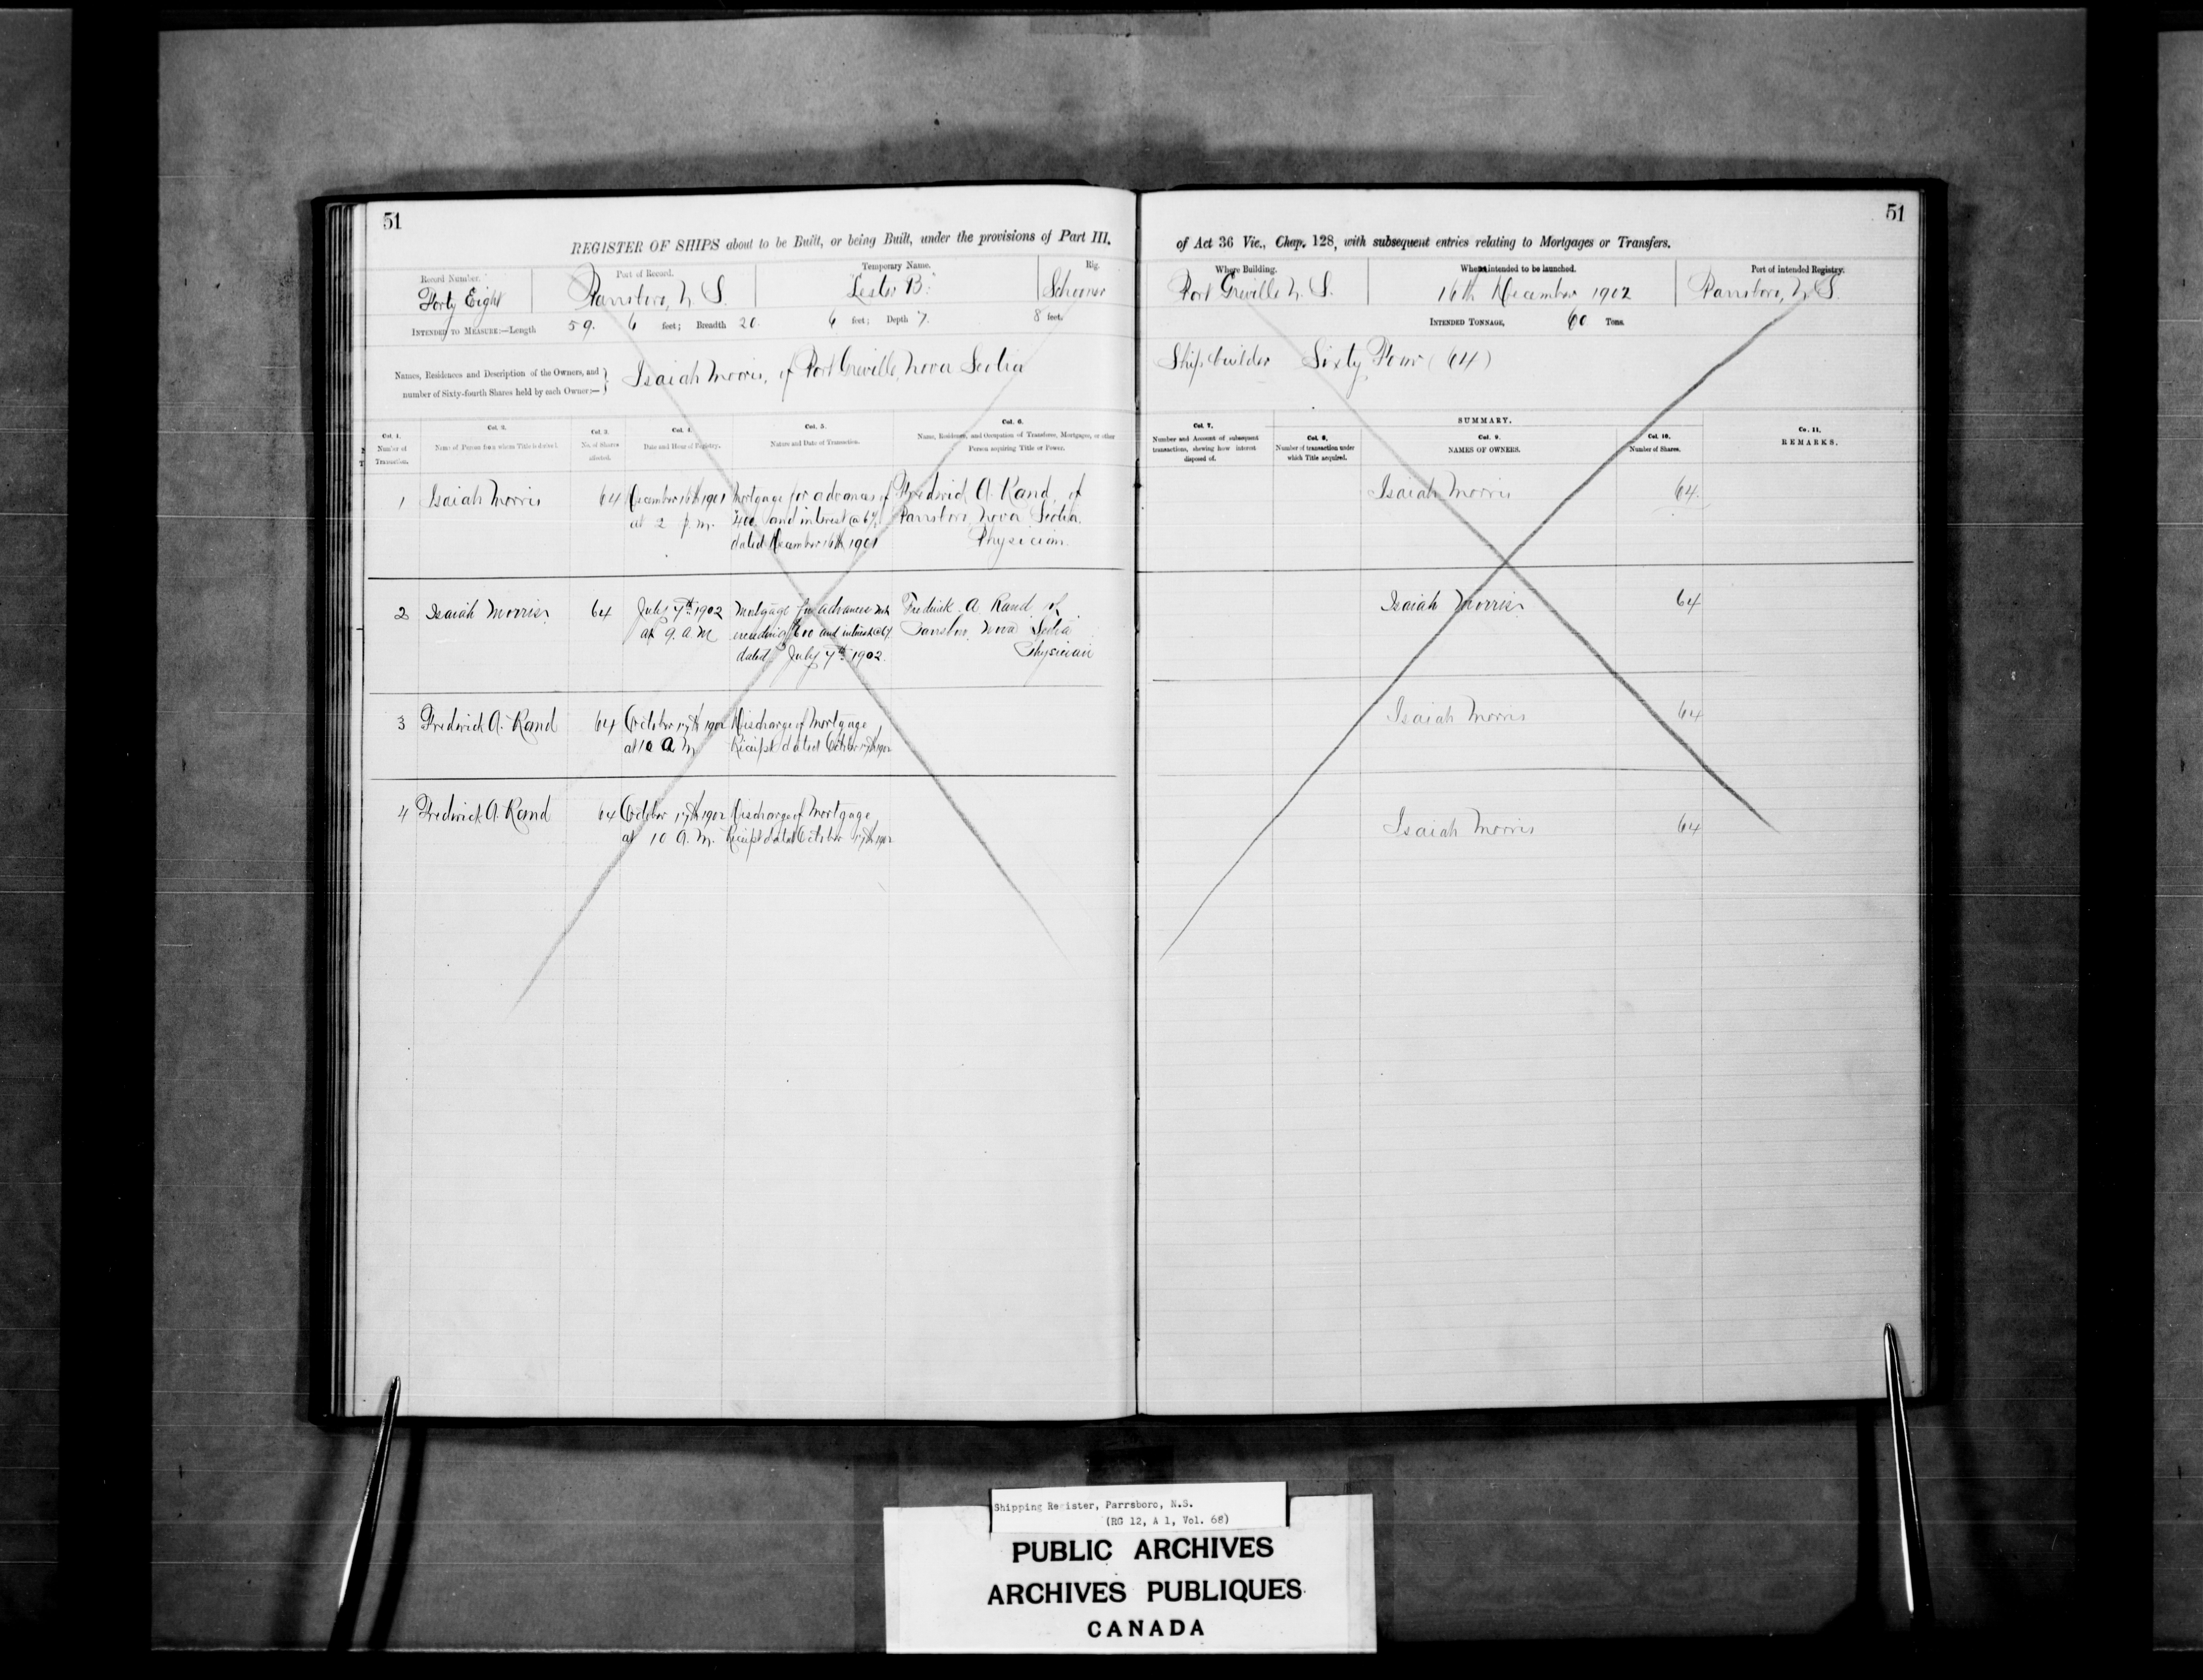 51
REGISTER OF SHIPS about to be Built, or being Built, under the provisions of Part III.
Record Number.
Forty Eight
Port of Record.
Parrsboro, N. S.
Temporary Name.
"Lester B."
Rig.
Schooner
INTENDED TO MEASURE:—Length 59. 6 feet; Breadth 20. 6 feet; Depth 7. 8 feet.
Names, Residences and Description of the Owners, and
number of Sixty-fourth Shares held by each Owner:—
Isaiah Morris, of Port Greville, Nova Scotia
Col. 1.
Number of
Transaction.
Col. 2.
Name of Person from whom Title is derived.
Col. 3.
No. of Shares
affected.
Col. 4.
Date and Hour of Registry.
Col. 5.
Nature and Date of Transaction.
Col. 6.
Name, Residence, and Occupation of Transferee, Mortgagee, or other
Person acquiring Title or Power.
1 Isaiah Morris 64 December 16th 1901 Mortgage for advances of Fredrick A. Rand, of
at 2 p. m. 400 and interest @ 6% Parrsboro, Nova Scotia.
dated December 16th 1901 Physician.
2 Isaiah Morris 64 July 7th 1902 Mortgage for advances not Fredrick A Rand of
at 9. a. M exceeding $600 and interest @ 6% Parrsboro, Nova Scotia
dated July 7th 1902. Physician
3 Fredrick A. Rand 64 October 17th 1902 Discharge of Mortgage
at 10 a M Receipt dated October 17th 1902
4 Fredrick A. Rand 64 October 17th 1902 Discharge of Mortgage
at 10 A. M. Receipt dated October 17th 1902
51
of Act 36 Vic., Chap. 128, with subsequent entries relating to Mortgages or Transfers.
Where Building.
Port Greville N. S.
When intended to be launched.
16th December 1902
Port of intended Registry.
Parrsboro, N. S.
INTENDED TONNAGE, 60 Tons.
Shipbuilder Sixty Four (64)
Col. 7.
Number and Account of subsequent
transactions, shewing how interest
disposed of.
Col. 8.
Number of transaction under
which Title acquired.
SUMMARY.
Col. 9.
NAMES OF OWNERS.
Col. 10.
Number of Shares.
Co. 11.
REMARKS.
Isaiah Morris 64.
Isaiah Morris 64
Isaiah Morris 64
Isaiah Morris 64
Shipping Register, Parrsboro, N.S.
(RG 12, A 1, Vol. 68)
PUBLIC ARCHIVES
ARCHIVES PUBLIQUES
CANADA